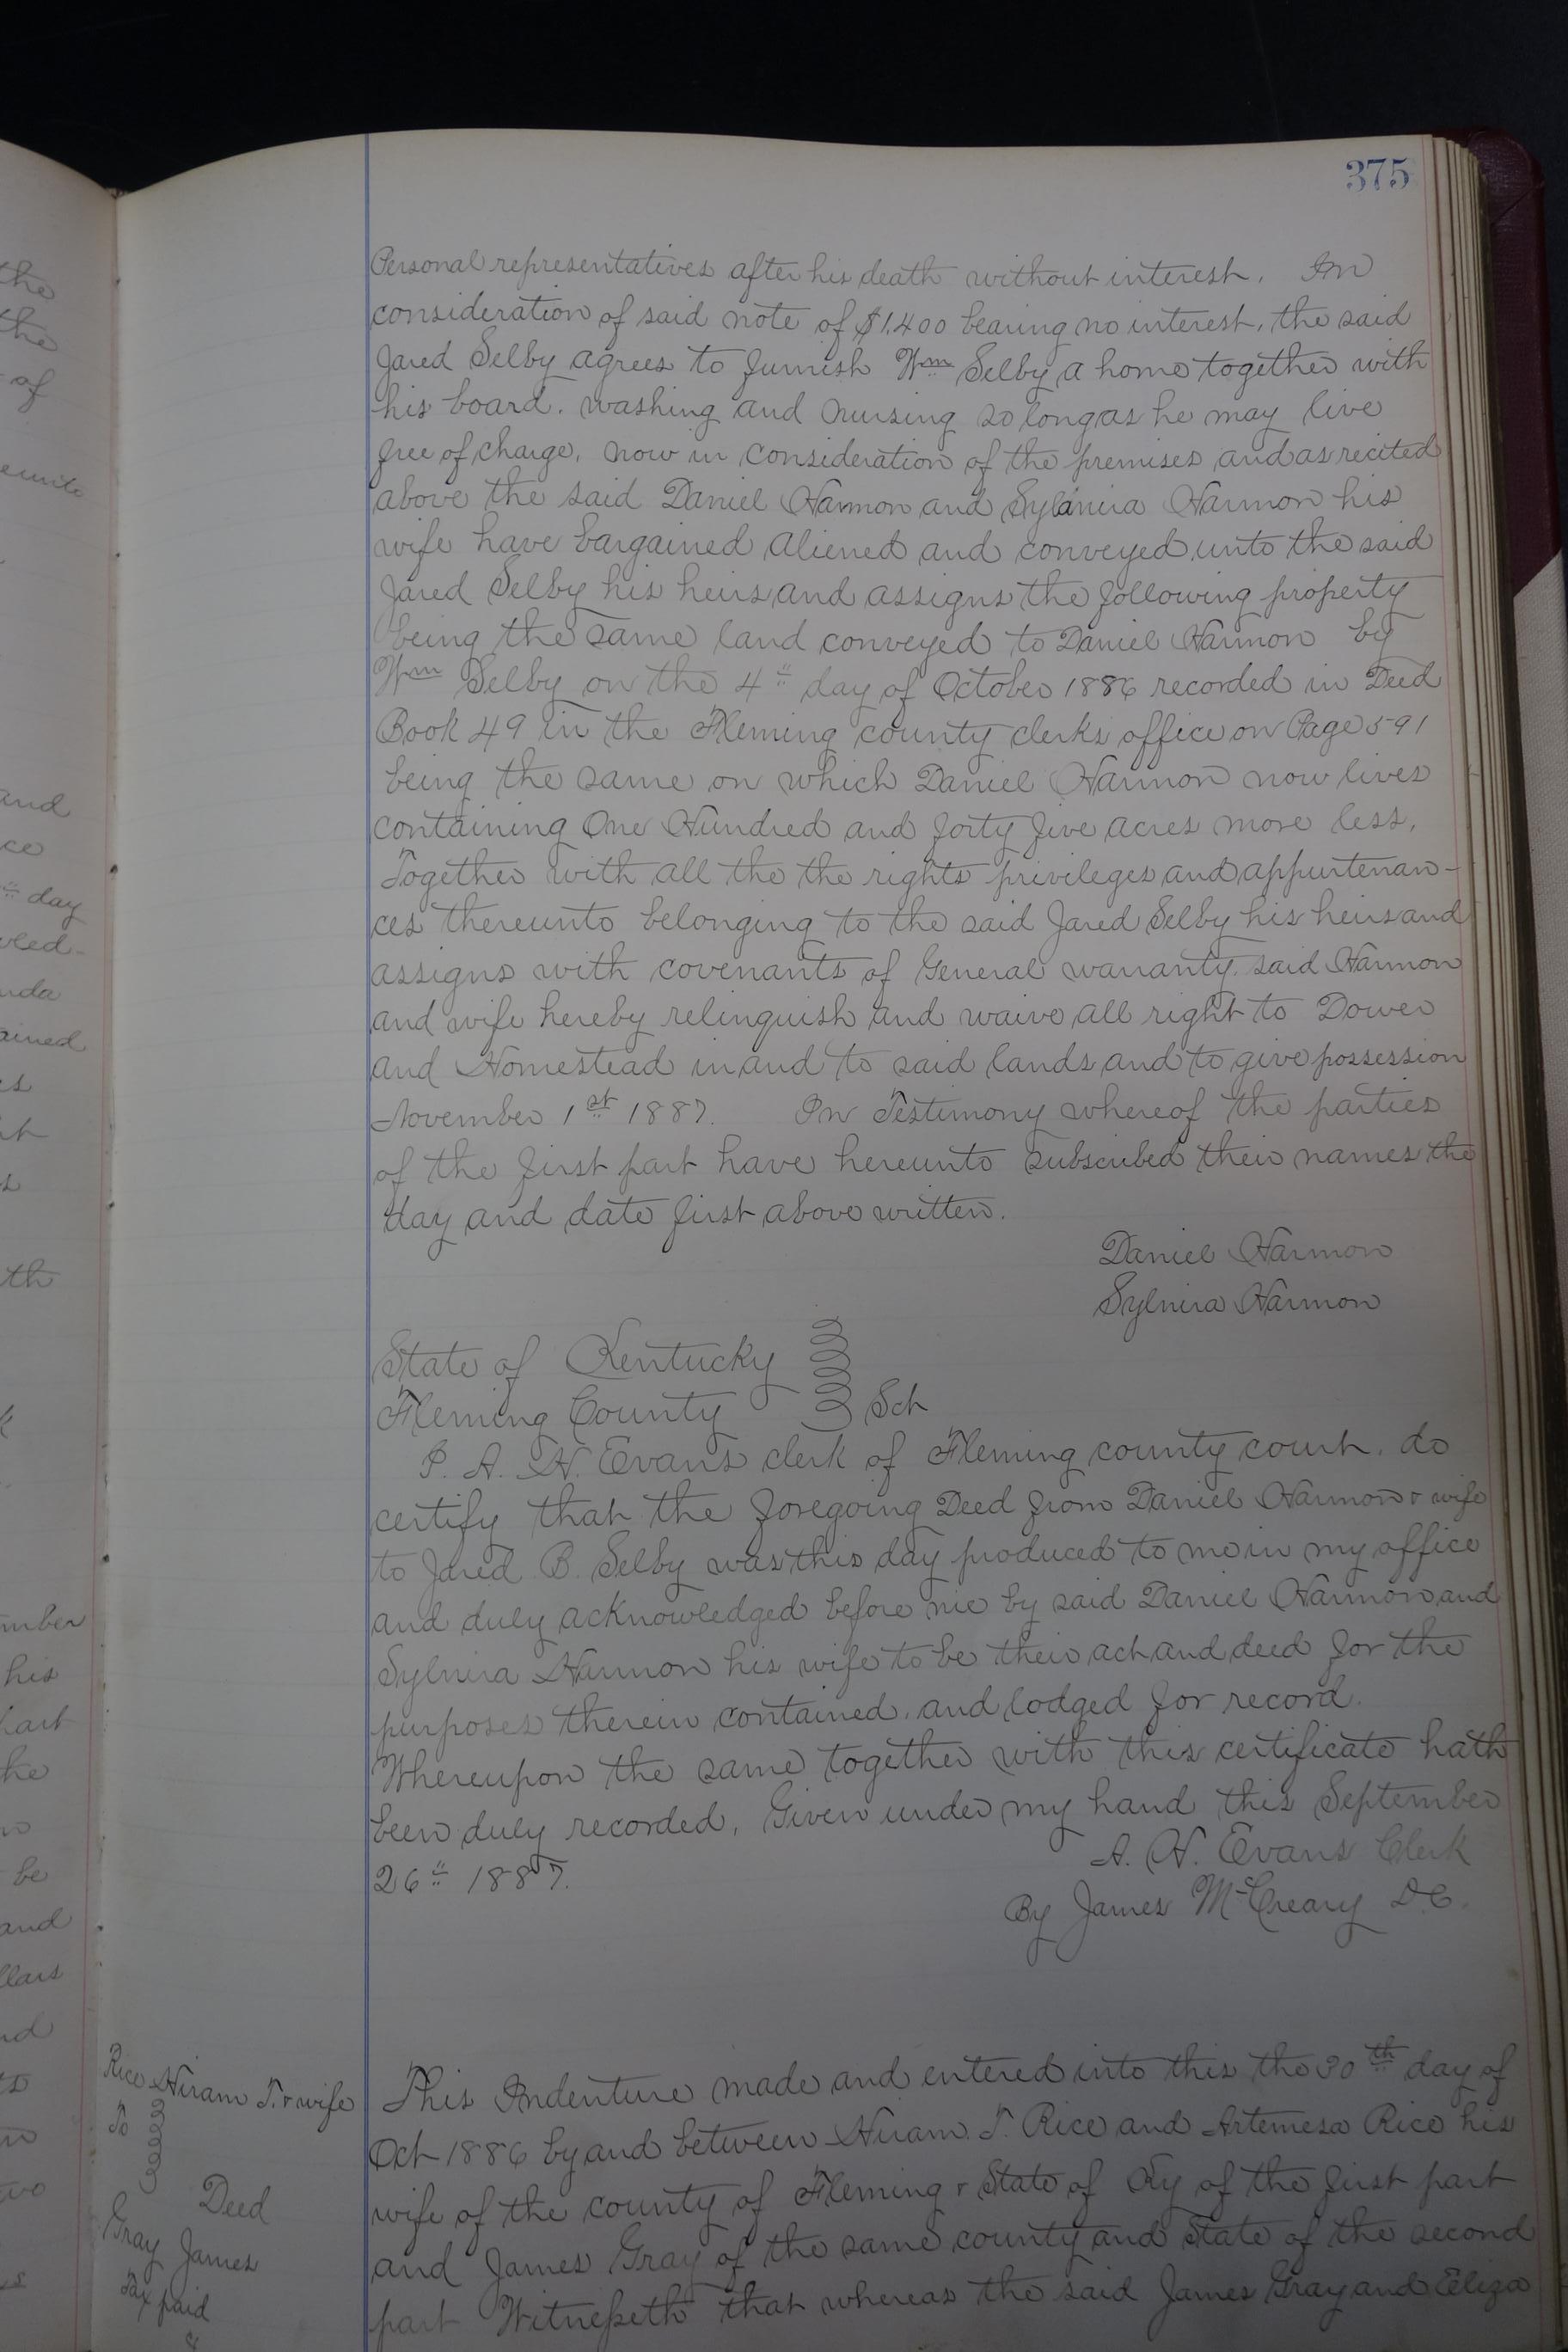 375
Personal representatives after his death without interest. In
consideration of said note of $1.400 bearing no interest, the said
Jared Selby agrees to furnish Wm Selby a home together with
his board, washing and nursing so long as he may live
free of charge, now in consideration of the premises and as recited
above the said Daniel Harmon and Sylanira Harmon his
wife have bargained aliened and conveyed unto the said
Jared Selby his heirs and assigns the following property
being the same land conveyed to Daniel Harmon by
Wm Selby on the 4" day of October 1886 recorded in Deed
Book 49 in the Fleming county clerks office on Page 591
being the same on which Daniel Harmon now lives
containing One Hundred and forty five acres more less,
Together with all the the rights privileges and appurtenan-
ces thereunto belonging to the said Jared Selby his heirs and
assigns with covenants of General warranty. said Harmon
and wife hereby relinquish and waive all right to Dower
and Homestead in and to said lands and to give possession
November 1st 1887. In Testimony whereof the parties
of the first part have hereunto subscribed their names the
day and date first above written.
Daniel Harmon
Sylnira Harmon
State of Kentucky
Fleming County Sct
I. A. H. Evans clerk of Fleming county court, do
certify that the foregoing Deed from Daniel Harmon & wife
to Jared B. Selby was this day produced to me in my office
and duly acknowledged before me by said Daniel Harmon and
Sylnira Harmon his wife to be their act and deed for the
purposes therein contained, and lodged for record.
Whereupon the same together with this certificate hath
been duly recorded. Given under my hand this September
26" 1887.
A. H. Evans Clerk
By James McCreary D.C.
Rice Hiram T. & wife
To
Deed
Gray James
Tax paid
This Indenture made and entered into this the 30th day of
Oct 1886 by and between Hiram T. Rice and Artemesa Rice his
wife of the county of Fleming & State of Ky of the first part
and James Gray of the same county and State of the second
part Witnesseth that whereas the said James Gray and Eliza
the
the
of
and
day
ained
th
mber
his
part
he
be
and
llars